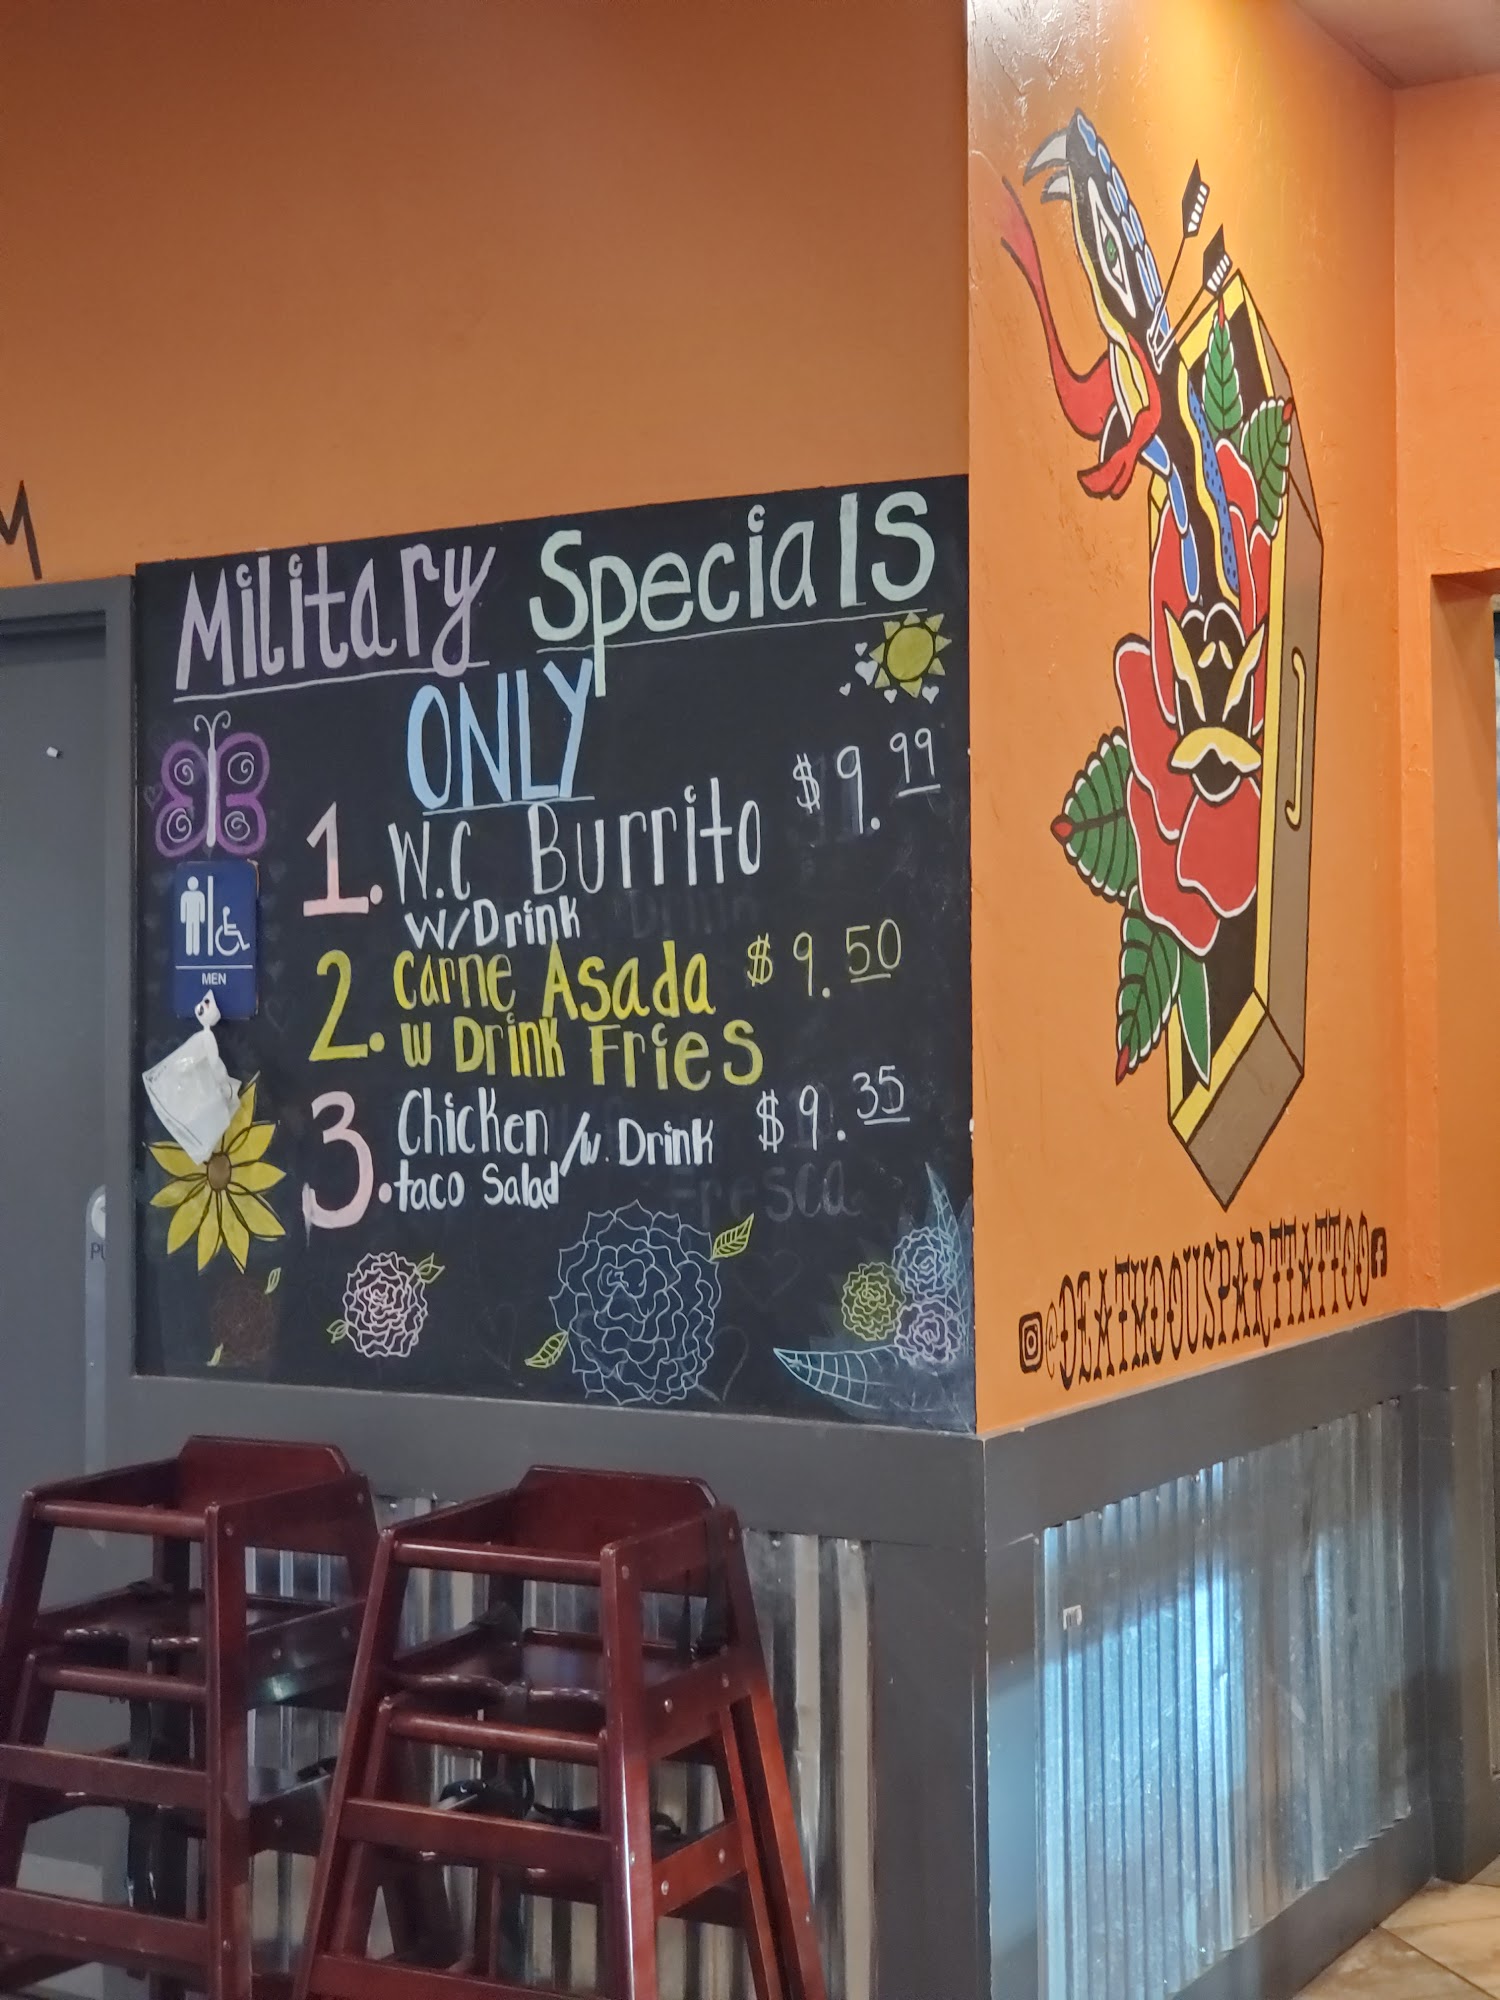 M
Military Specials
ONLY
1. W.C Burrito $9.99
W/Drink
2. Carne Asada $9.50
w Drink Fries
3. Chicken /w. Drink $9.35
taco Salad
Fresca
MEN
PU
@DEATHDOUSPARTTATTOO